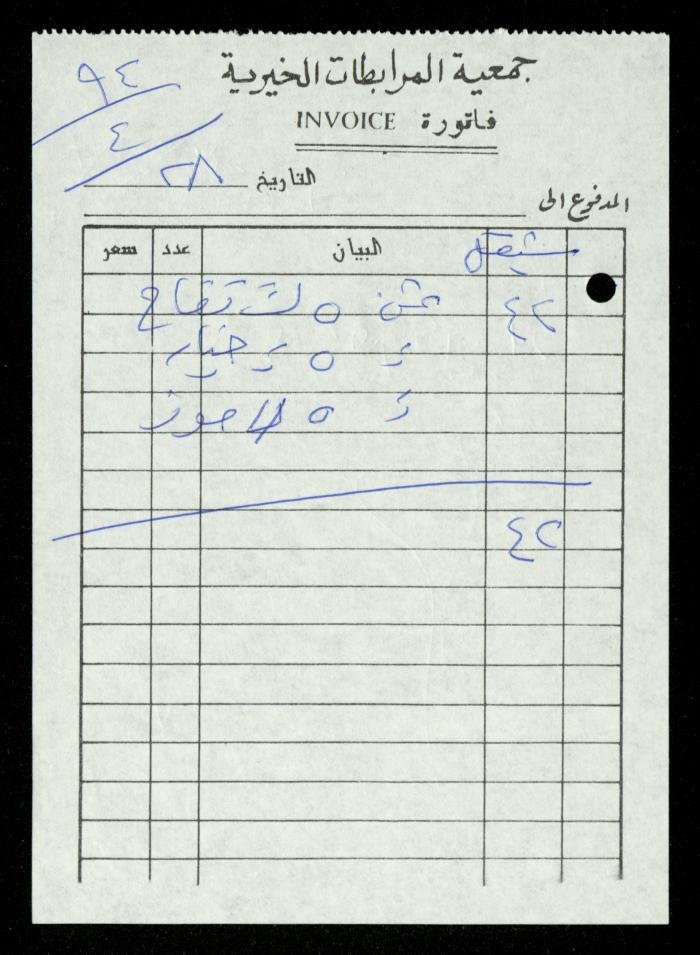 جمعية المرابطات الخيرية
فاتورة INVOICE
٩٤
٤
٢٨ التاريخ
المدفوع الى
شيقل البيان عدد سعر
٤٢ ثمن ٥ ك تفاح
٥ خيار
٥ موز
٤٢